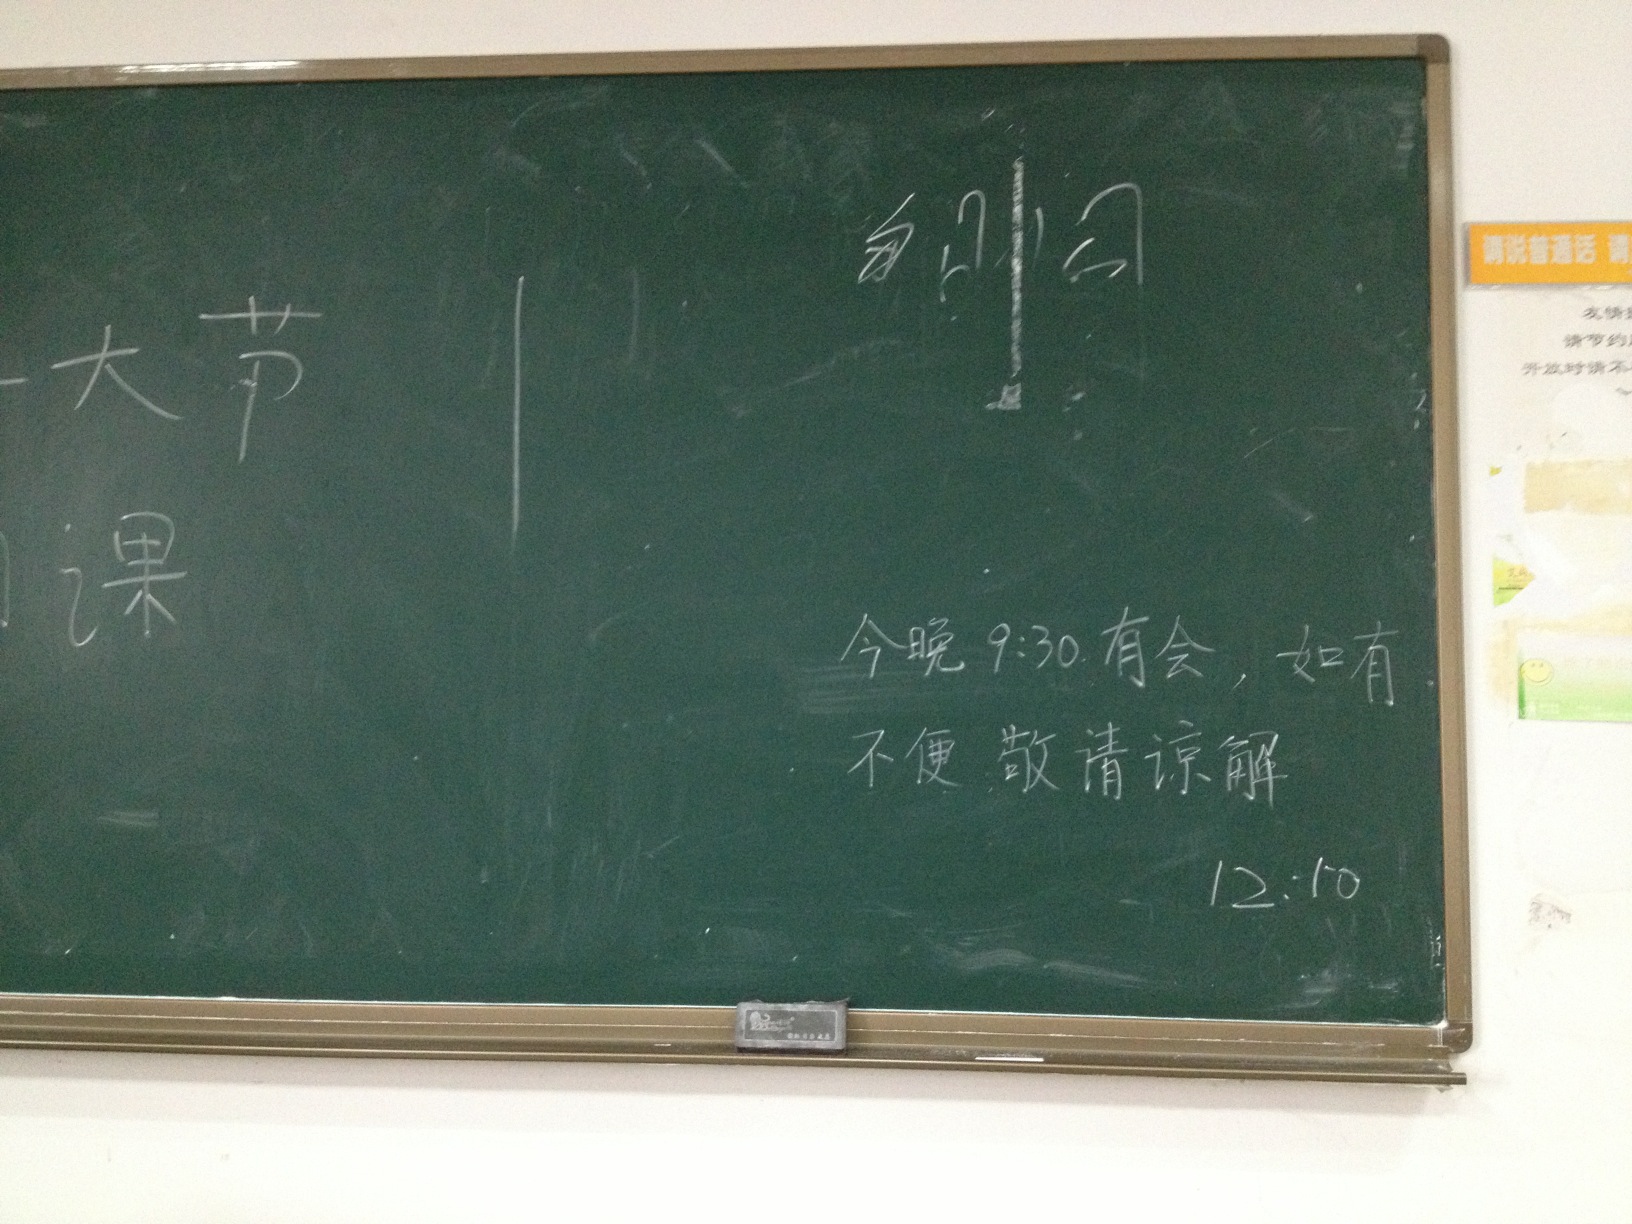 大节
课
今晚 9:30. 有会，如有
不便 敬请谅解
12:10
请说普通话 请
友情
请节约
开放时请不